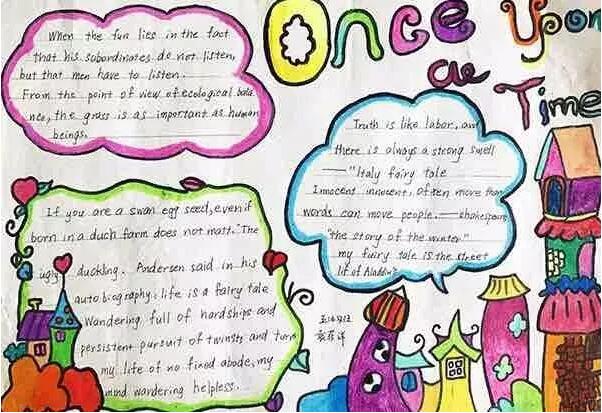 Once Upon
a Time
When the fun lies in the fact
that his subordinates do not listen,
but that men have to listen.
From the point of view of ecological bala
nce, the grass is as important as human
beings.
Truth is like labor, an
there is always a strong smell
—"Italy fairy tale
Innocent innocent, often more than
words can move people.—shakespeare
"the story of the winter"
my fairy tale is the street
lif of Aladdin"
If you are a swan egg seed, even if
born in a duch farm does not matt. "The
ugly duckling. Andersen said in his
autobiography: life is a fairy tale
Wandering full of hardships and
persistent pursuit of twinsts and turn
my life of no fixed abode, my
mind wandering helpless.